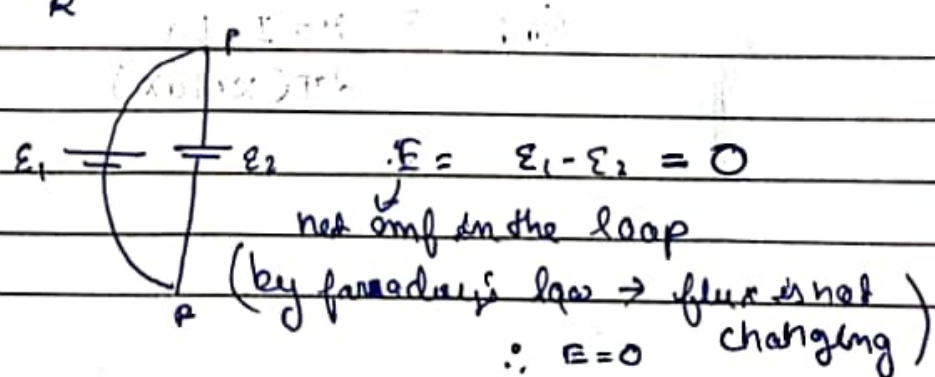 R
P
ε₁ ε₂ E = ε₁ - ε₂ = 0
net emf in the loop
(by farraday's law → flux is not
changing)
P
∴ E = 0